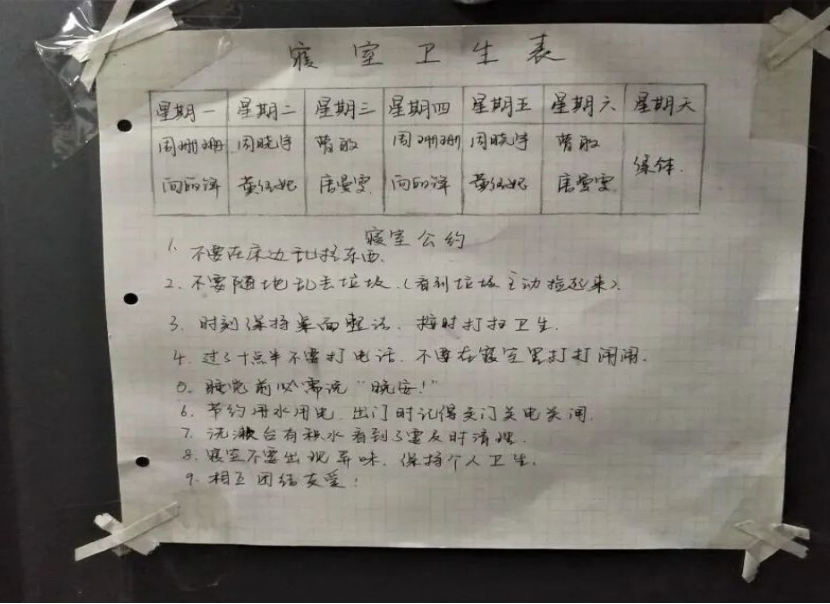 寝室卫生表
星期一 星期二 星期三 星期四 星期五 星期六 星期天
周珊珊 周晓宇 曾敏 周珊珊 周晓宇 曾敏
向丽萍 黄 妃 唐曼雯 向丽萍 黄 妃 唐曼雯
寝室公约
1. 不要在床边乱挂东西.
2. 不要随地乱丢垃圾.(看到垃圾主动捡起来).
3. 时刻保持桌面整洁、按时打扫卫生.
4. 过了十点半不要打电话、不要在寝室里打打闹闹.
5. 睡觉前必需说“晚安!”
6. 节约用水用电. 出门时记得关门关电关闸.
7. 洗漱台有积水看到了要及时清理.
8. 寝室不要出现异味、保持个人卫生.
9. 相互团结友爱!